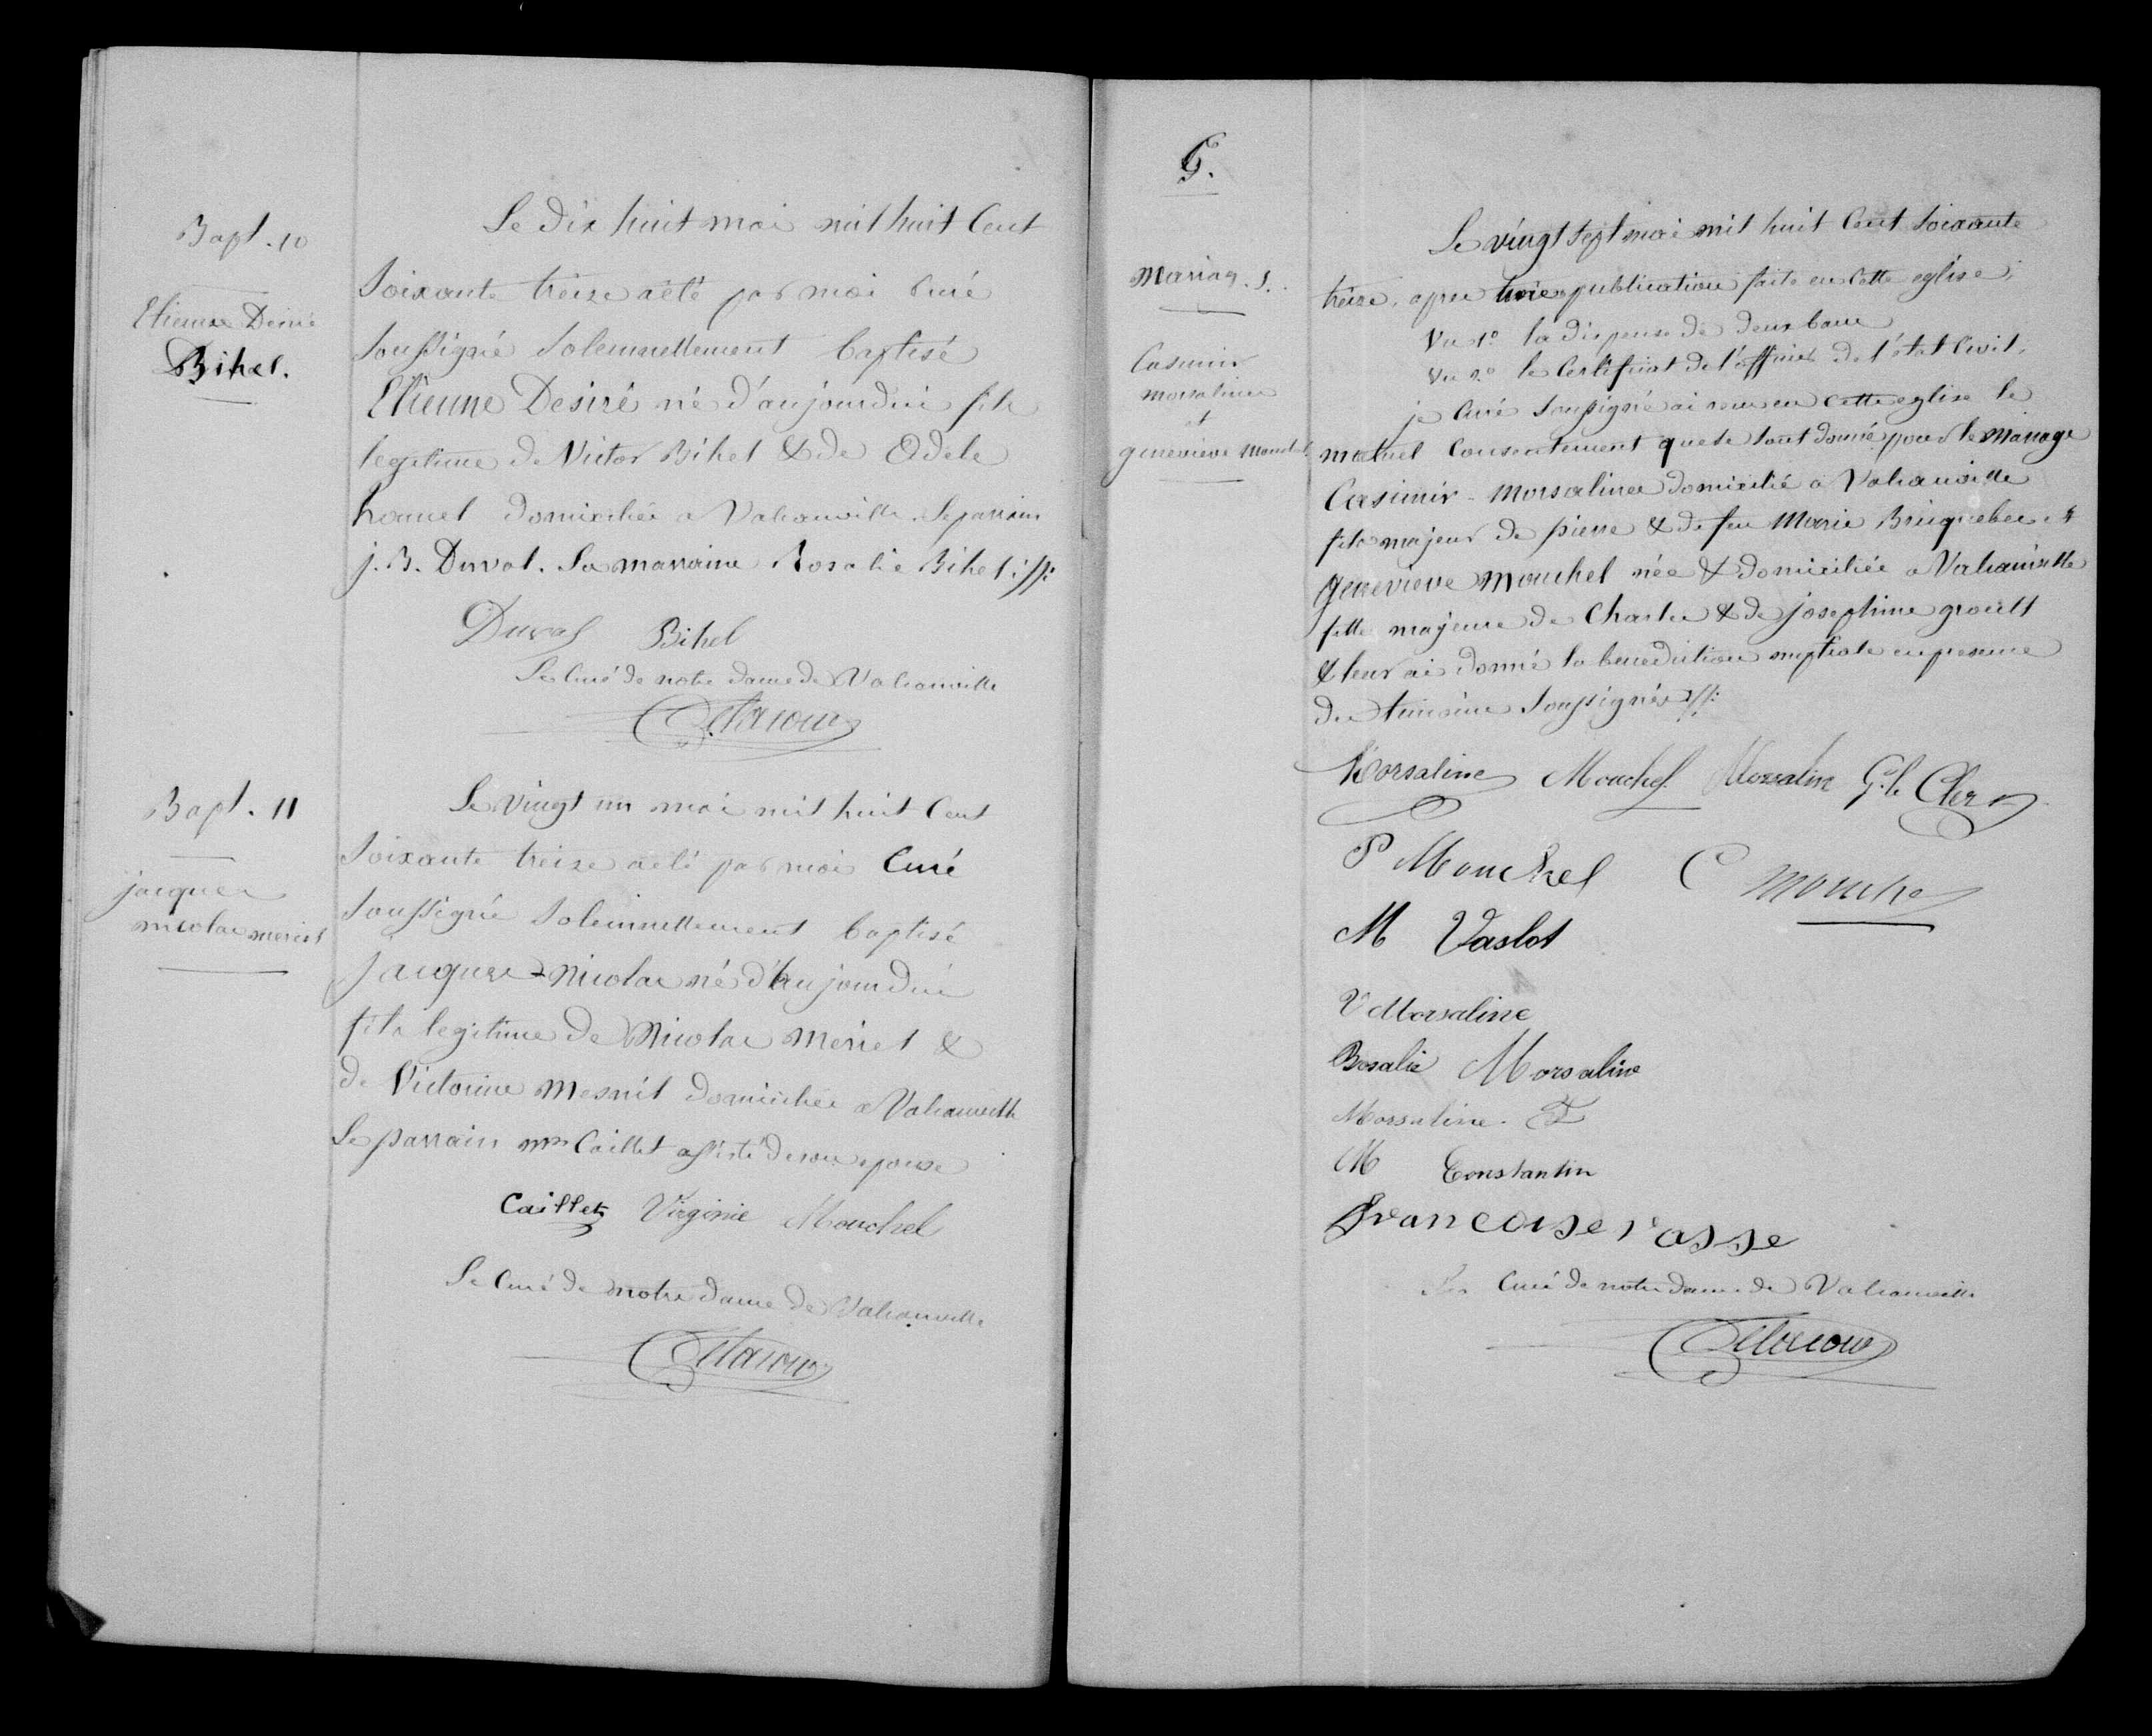 Bapt. 10
Etienne Desiré
Bihel.
Le dix huit mai mil huit Cent
Soixante treize a été par moi Curé
Soussigné Solemnellement baptisé
Etienne Desiré né d'aujourdui fils
legitime de Victor Bihel & de Adele
hamel domicilié a Valcanville. Le parrain
j. B. Duval. La marraine Rosalie Bihel
Duval Bihel
Le Curé de notre dame de Valcanville
Delacour
Bapt. 11
jacques
nicolas meriel
Le vingt un mai mil huit Cent
Soixante treize a été par moi Curé
Soussigné Solemnellement baptisé
jacques-nicolas né d'aujourdui
fils legitime de Nicolas meriel &
de Victorine Mesnil domiciliés a Valcanville
Le parrain mr Caillet assisté de son epouse
Caillet Virginie Mouchel
Le Curé de notre dame de Valcanville
Delacour
6.
Mariag. 5.
Casimir
morsaline
et
genevieve Mouchel
Le vingt sept mai mil huit Cent Soixante
treize, apres une publication faite en cette eglise,
Vu 1° la dispense de deux bans
Vu 2° le Certificat de l'officier de l'état Civil,
je Curé Soussigné ai recu en cette eglise le
mutuel Consentement que se sont donné pour le mariage
Casimir Morsaline domicilié a Valcanville
fils majeur de pierre & de feu Marie Bricquebec et
genevieve Mouchel née & domiciliée a Valcanville
fille majeure de Charles & de josephine groult
& leur ai donné la benediction nuptiale en presence
des temoins Soussignés
Morsaline Mouchel Morsalin G. le Clerc
P Mouchel C mouchel
M Vaslot
V Morsaline
Rosalie Morsaline
Morsaline. F
M Constantin
Francoise Passe
Le Curé de notre dame de Valcanville
Delacour